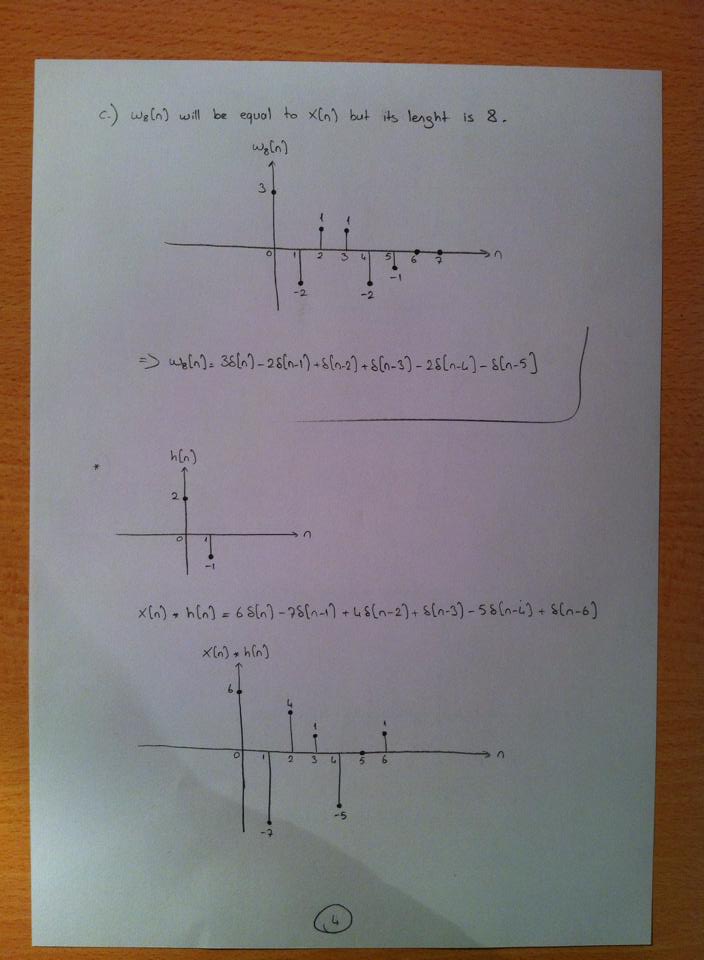 c.) w₈[n] will be equal to x[n] but its lenght is 8.
w₈[n]
3
1 1
0 1 2 3 4 5 6 7 n
-2 -2 -1
=> w₈[n] = 3δ[n] - 2δ[n-1] + δ[n-2] + δ[n-3] - 2δ[n-4] - δ[n-5]
* h[n]
2
0 1 n
-1
x[n] * h[n] = 6δ[n] - 7δ[n-1] + 4δ[n-2] + δ[n-3] - 5δ[n-4] + δ[n-6]
x[n] * h[n]
6
4
1 1
0 1 2 3 4 5 6 n
-5
-7
4